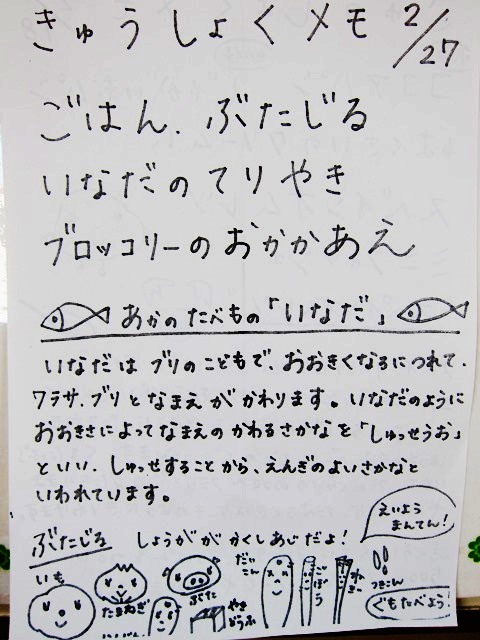 きゅうしょくメモ 2/27
ごはん、ぶたじる
いなだのてりやき
ブロッコリーのおかかあえ
あかのたべもの「いなだ」
いなだは ブリのこどもで、おおきくなるにつれて、
ワラサ、ブリとなまえがかわります。いなだのように
おおきさによってなまえのかわるさかなを「しゅっせうお」
といい、しゅっせすることから、えんぎのよいさかなと
いわれています。
ぶたじる しょうががかくしあじだよ!
えいよう
まんてん!
いも
たまねぎ
にんじん
ぶた
やき
どうふ
だいこん
ごぼう
ねぎ
つきこん
ぐもたべよう!